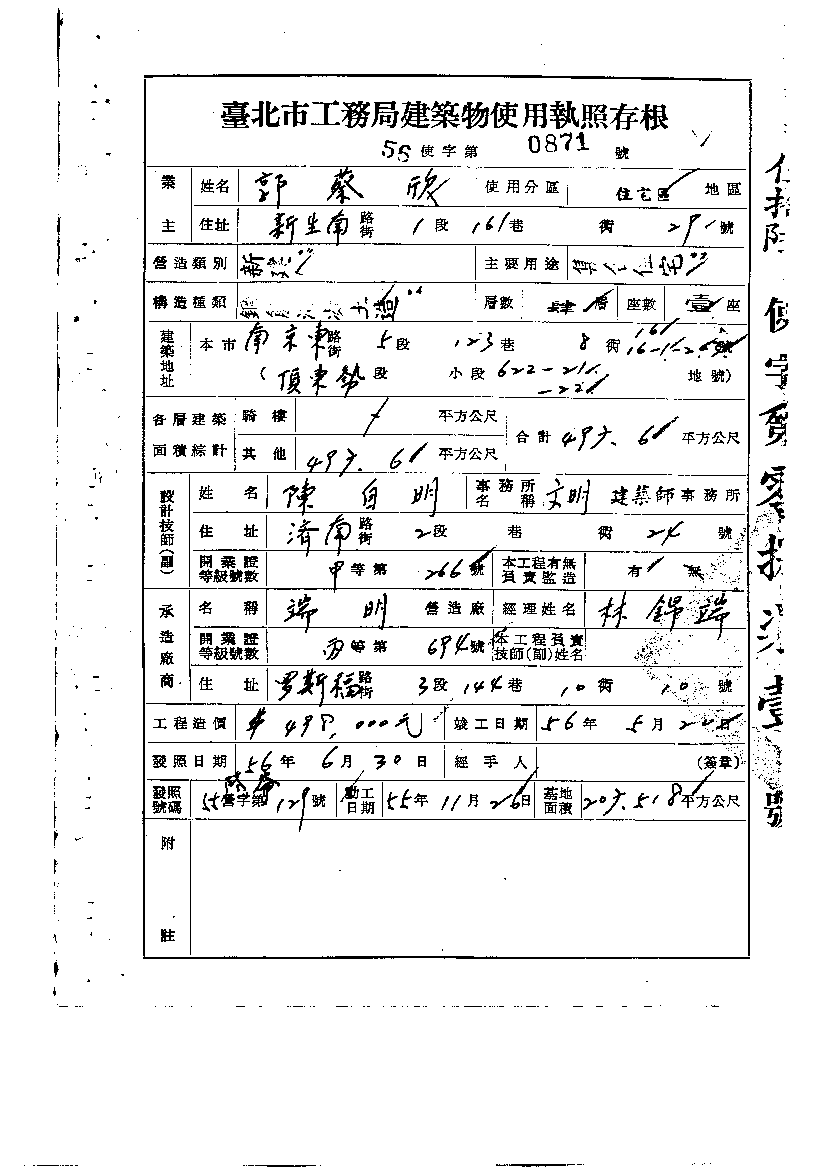 臺北市工務局建築物使用執照存根
56 使字第 0871 號
業主 姓名 郭蔡 使用分區 住宅區 地區
住址 新生南 路街 1 段 161 巷 衖 29 號
營造類別 新 主要用途 住宅
構造種類 土造 層數 肆層 座數 壹座
建築地址 本市 南京東 路街 5 段 123 巷 8 衖 16-1
(頂東勢 段 小段 622-21 -22 地號)
各層建築面積綜計 騎樓 平方公尺 合計 平方公尺
其他 平方公尺
設計技師(副) 姓名 陳自明 事務所名稱 文明 建築師事務所
住址 濟南 路街 2 段 巷 衖 24 號
開業證等級號數 甲等第 266 號 本工程有無負責監造 有 無
承造廠商 名稱 端明 營造廠 經理姓名 林錦端
開業證等級號數 丙等第 694 號 本工程負責技師(副)姓名
住址 罗斯福 路街 3 段 144 巷 10 衖 10 號
工程造價 000元 竣工日期 56 年 5 月 日
發照日期 56 年 6 月 30 日 經手人 (簽章)
發照號碼 55 營字第 129 號 動工日期 55 年 11 月 26 日 基地面積 平方公尺
附註
伍拾陸 使字第零捌柒壹號